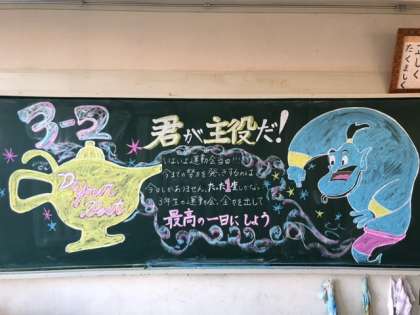 3-2
君が主役だ!
Do your best
いよいよ運動会当日…
今までの努力を発揮するのは
今日しかありません。たった1度しかない
3年生の運動会、全力を出して
最高の一日にしよう
正しく
たくましく